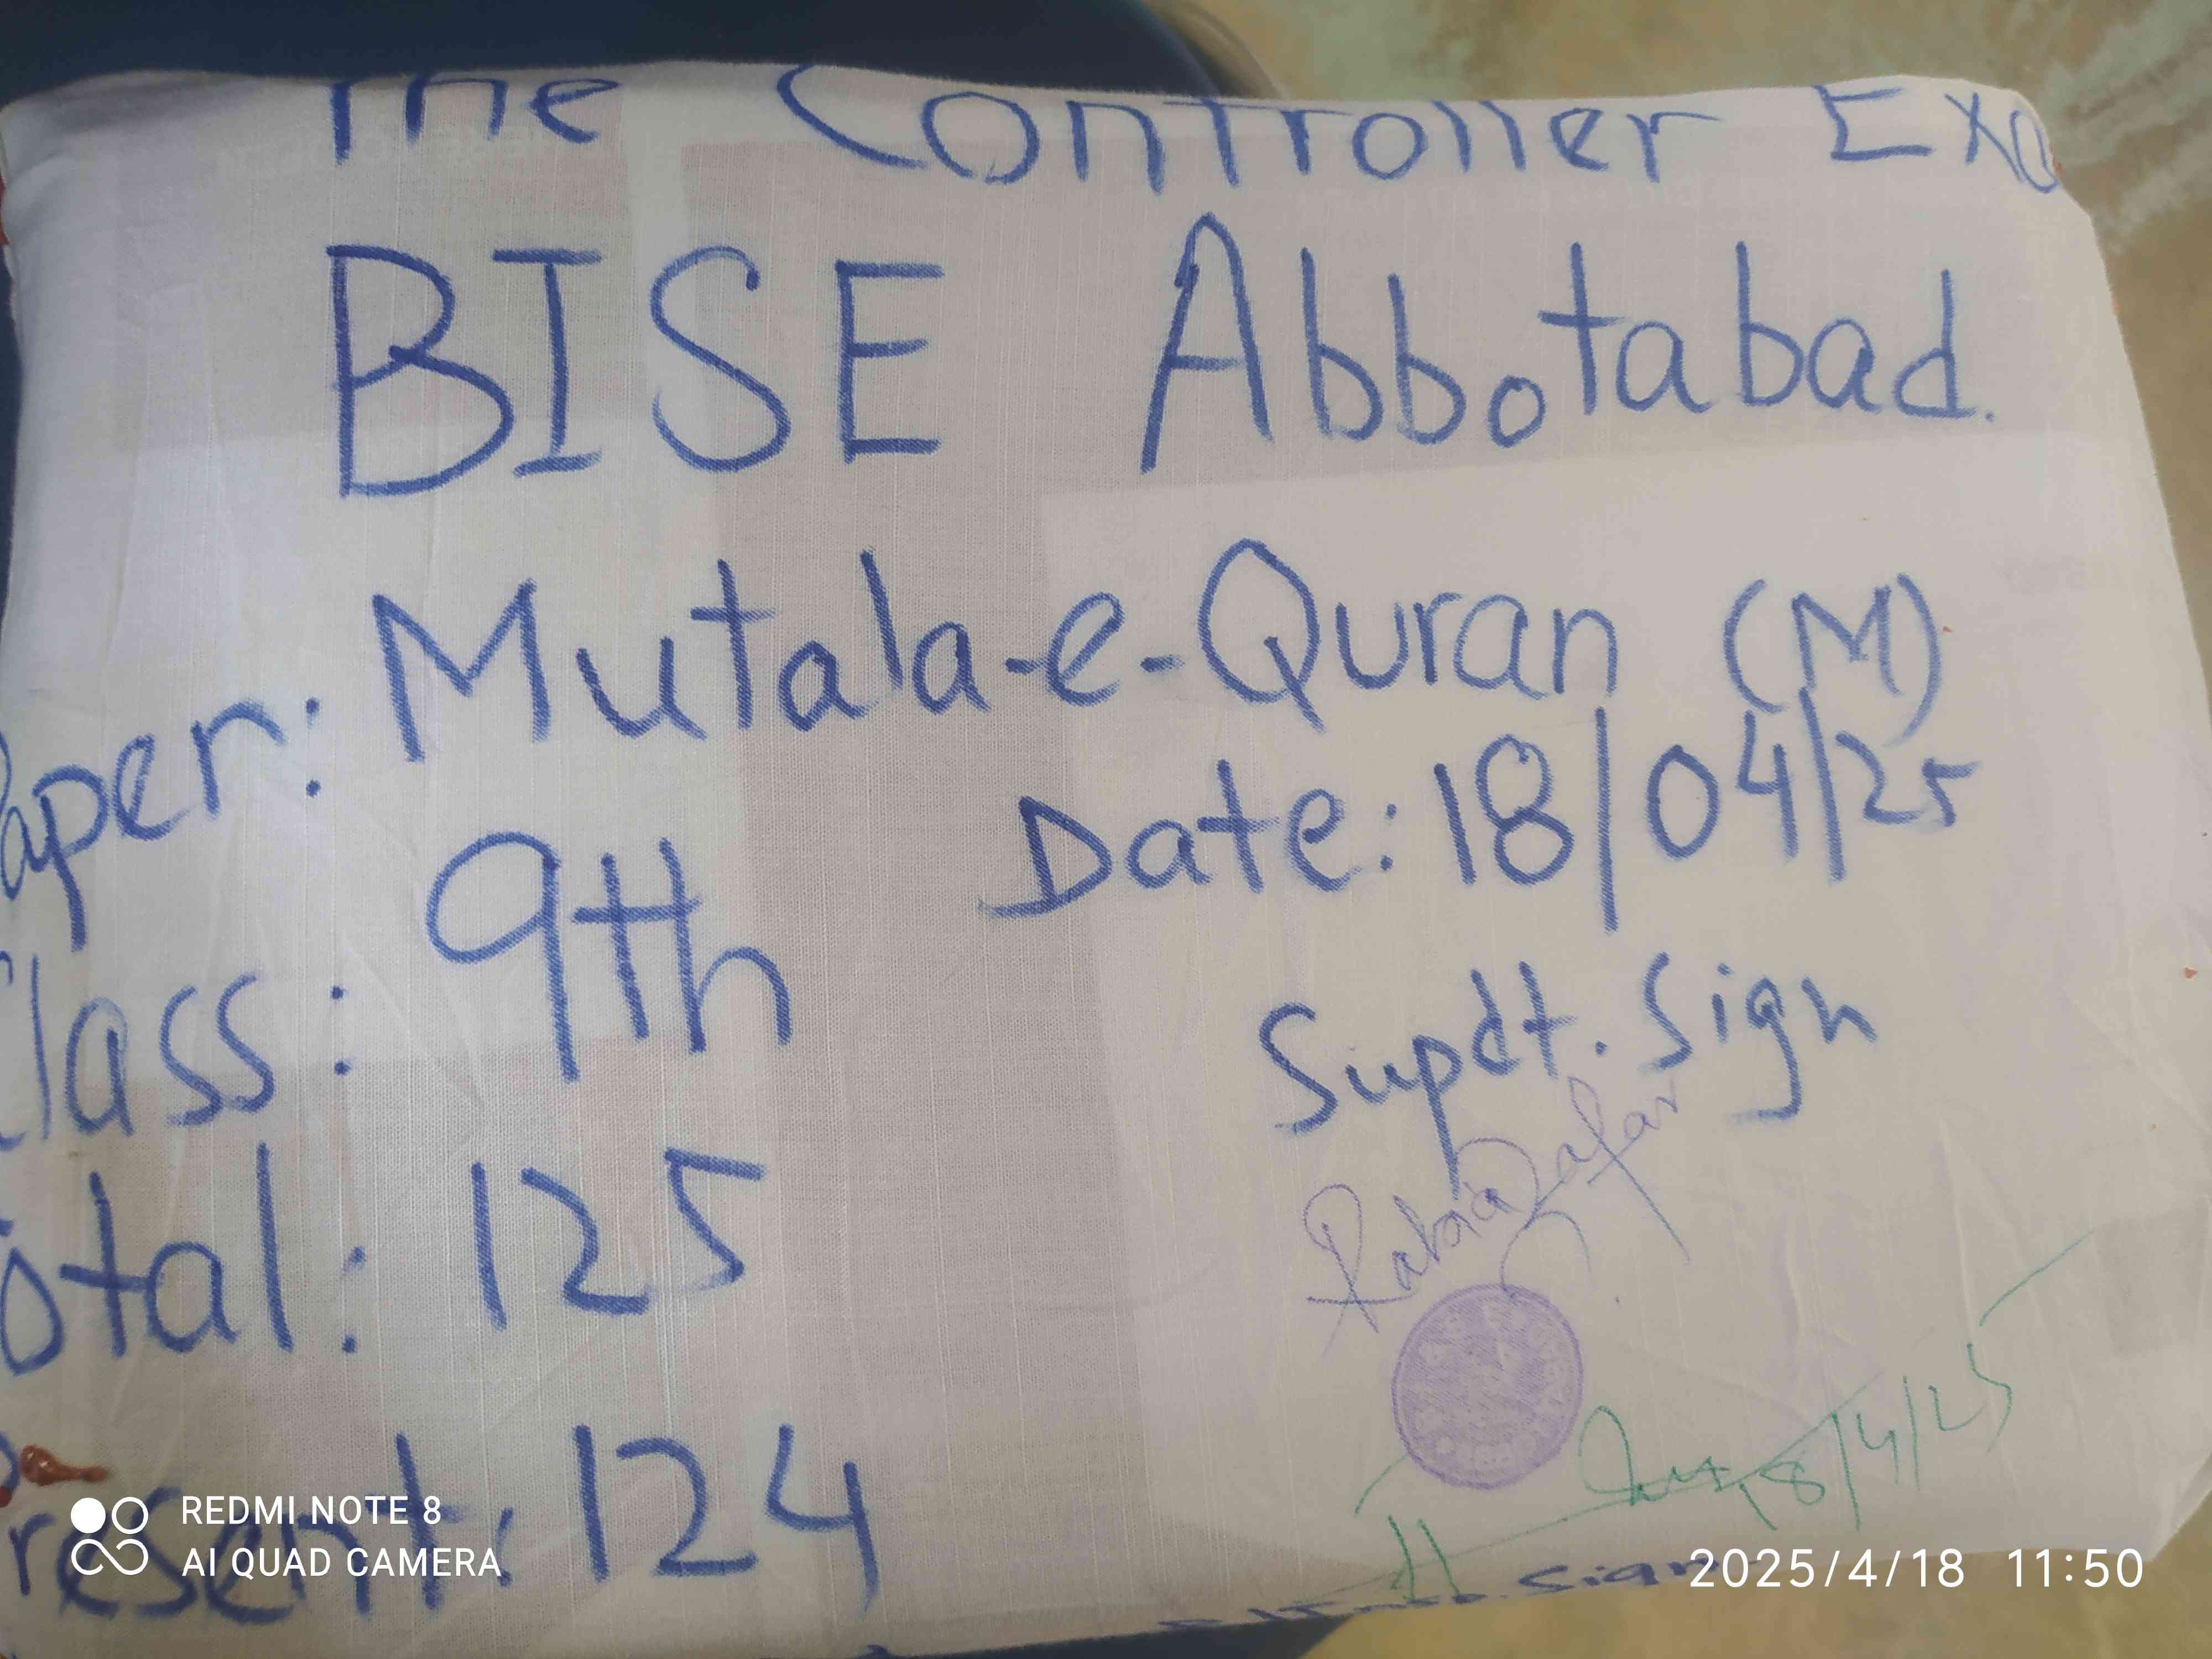 The Controller Exa
BISE Abbotabad.
Paper: Mutala-e-Quran (M)
Date: 18/04/25
Class: 9th
Supdt. Sign
Rabia Zafar
Total: 125
18/4/25
Present: 124
Sign
REDMI NOTE 8
AI QUAD CAMERA
2025/4/18 11:50